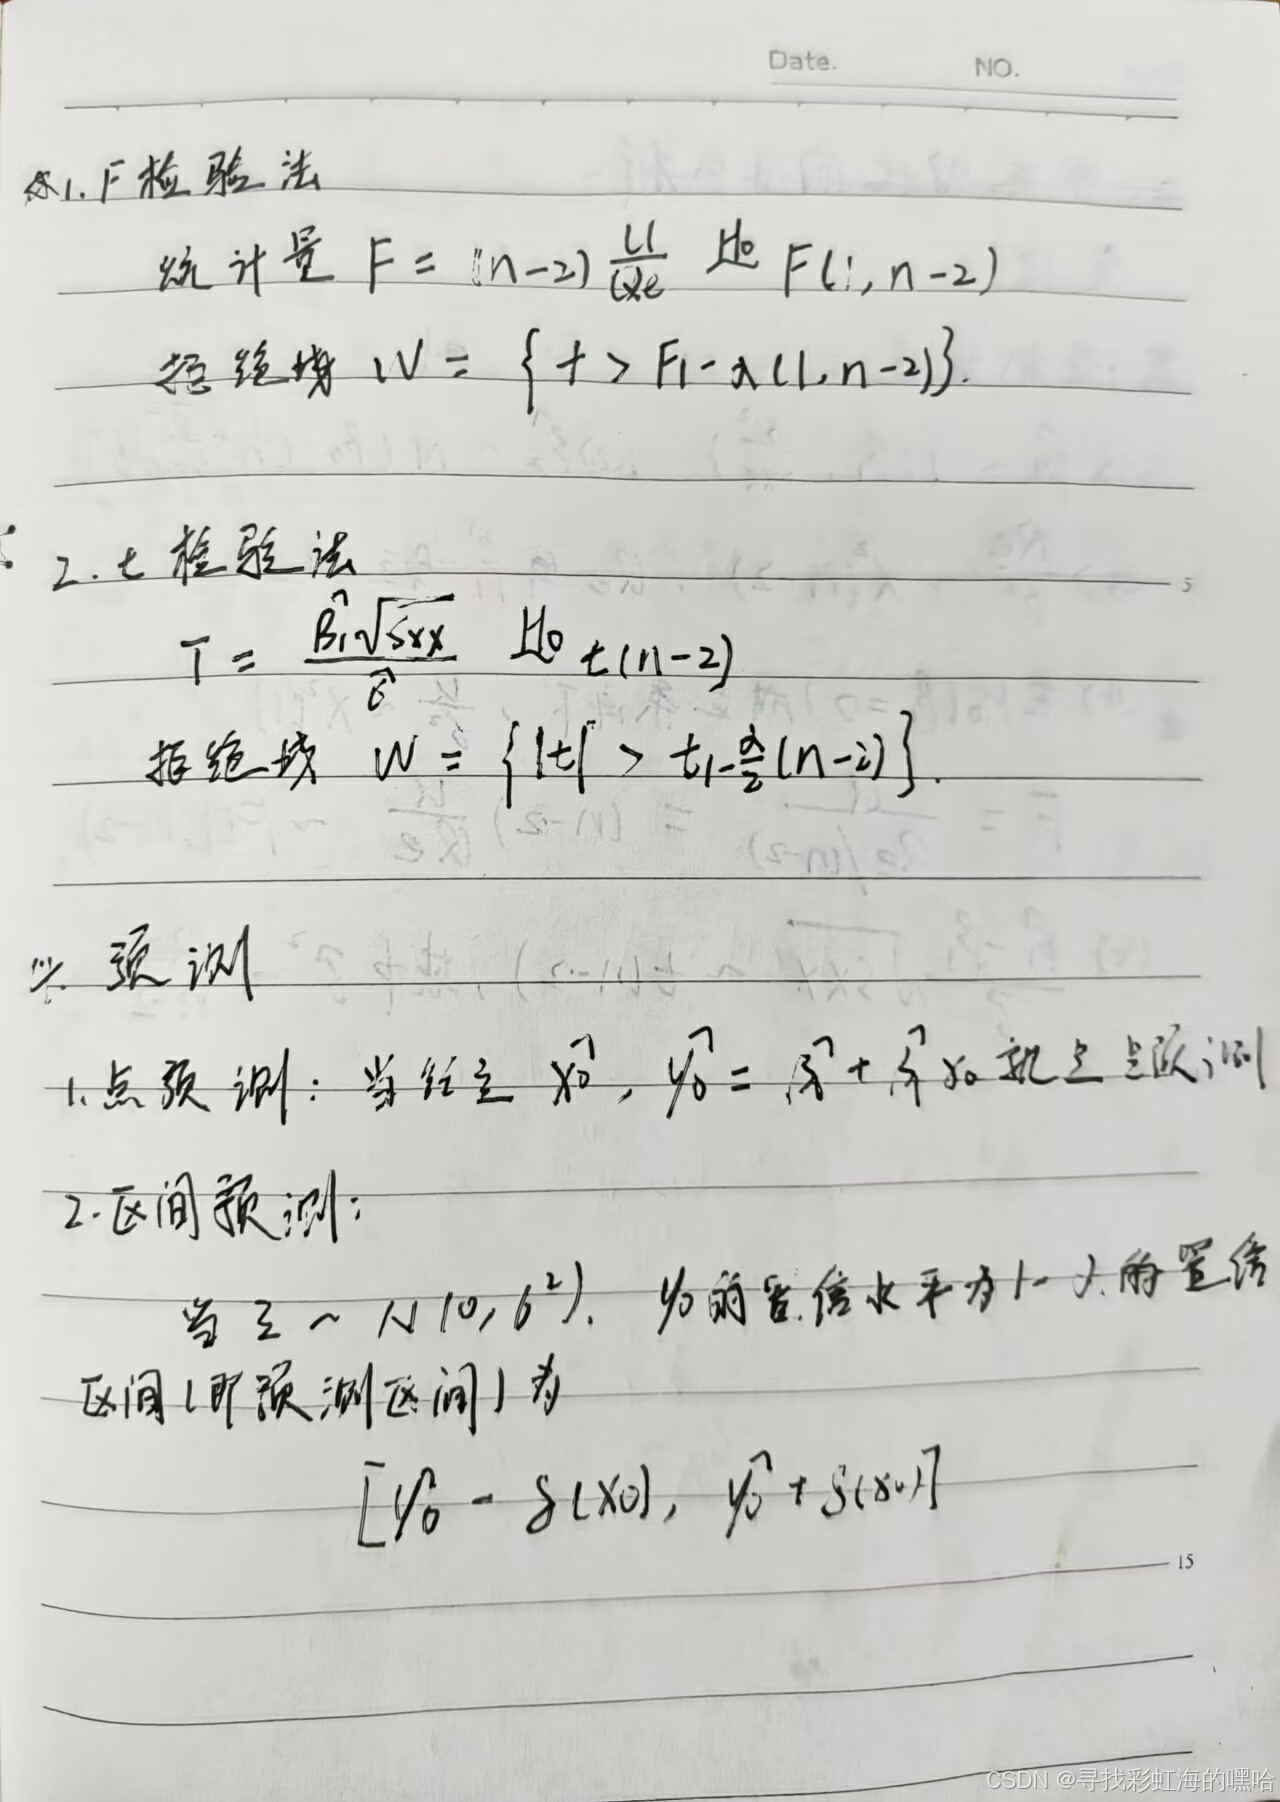 Date. NO.
1. F检验法
统计量 F = (n-2) U/Qe H₀ F(1, n-2)
拒绝域 W = {f > F1-α(1, n-2)}.
2. t检验法 5
T = β̂₁√Sxx/σ̂ H₀ t(n-2)
拒绝域 W = {|t| > t1-α/2(n-2)}.
预测
1. 点预测: 当给定 x̂₀, ŷ₀ = β̂₀ + β̂₁x₀ 就是点预测
2. 区间预测:
当 ε ~ N(0, σ²). y₀的置信水平为1-α的置信
区间(即预测区间)为
[ŷ₀ - δ(x₀), ŷ₀ + δ(x₀)]
15
CSDN @寻找彩虹海的嘿哈